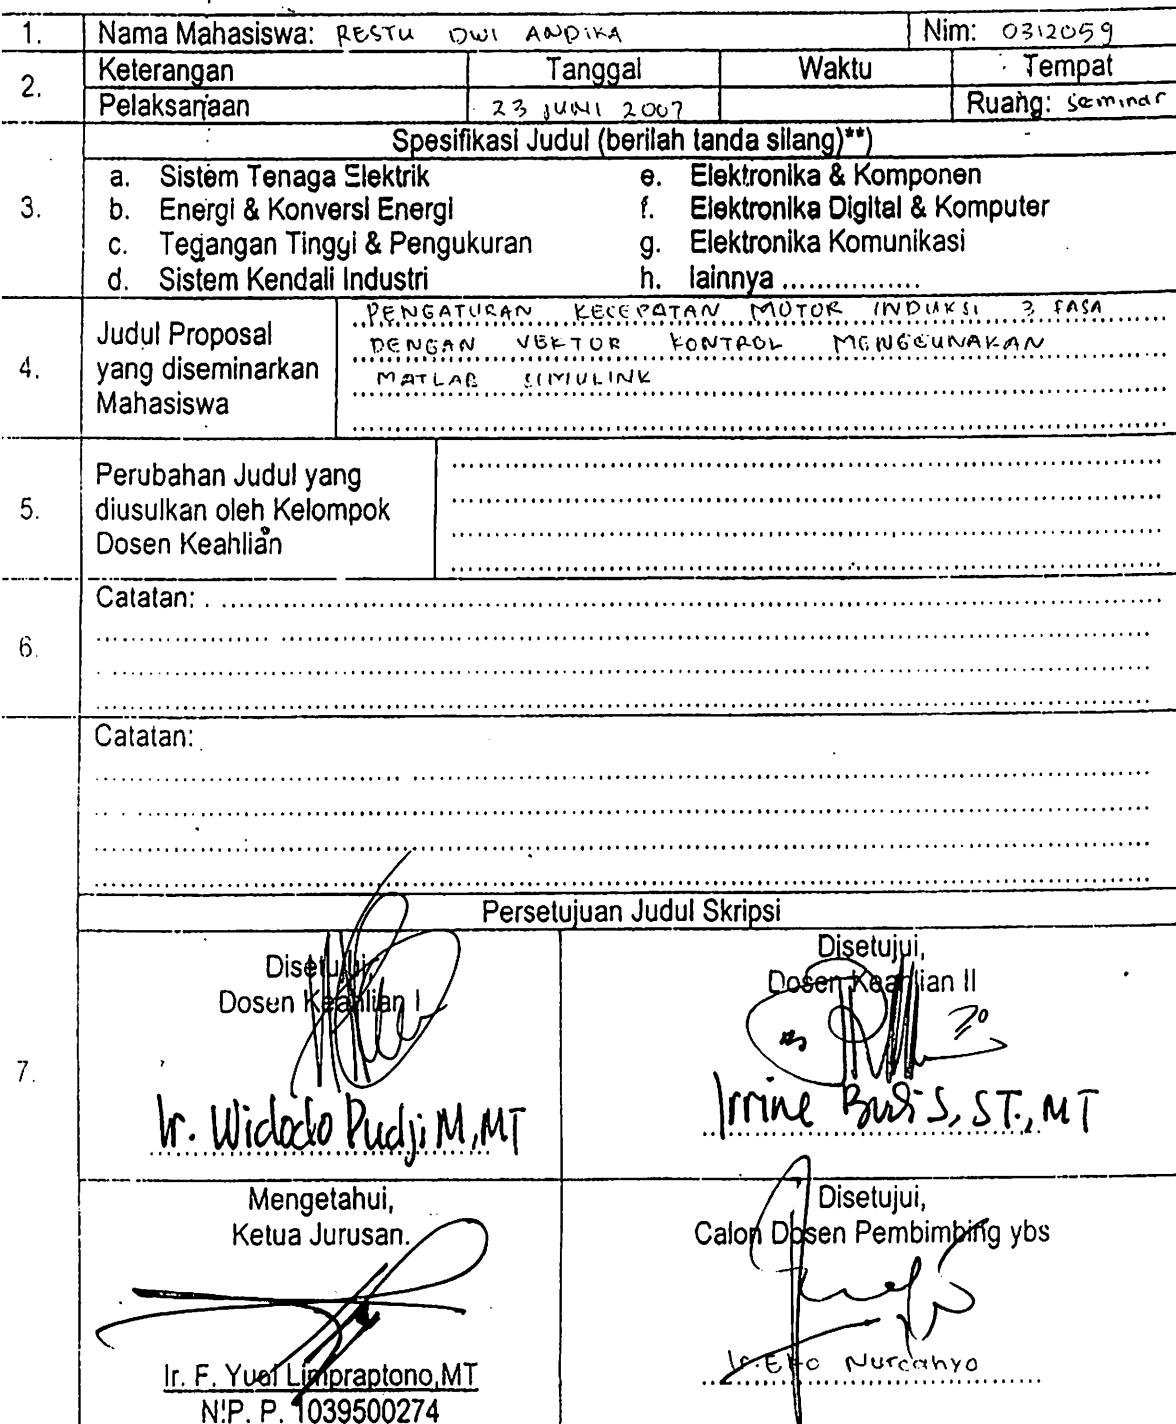 1. Nama Mahasiswa: RESTU DWI ANDIKA Nim: 0312059
2. Keterangan Tanggal Waktu Tempat
Pelaksanaan 23 JUNI 2007 Ruang: Seminar
3. Spesifikasi Judul (berilah tanda silang)**)
a. Sistem Tenaga Elektrik e. Elektronika & Komponen
b. Energi & Konversi Energi f. Elektronika Digital & Komputer
c. Tegangan Tinggi & Pengukuran g. Elektronika Komunikasi
d. Sistem Kendali Industri h. lainnya ................
4. Judul Proposal yang diseminarkan Mahasiswa
PENGATURAN KECEPATAN MOTOR INDUKSI 3 FASA
DENGAN VEKTOR KONTROL MENGGUNAKAN
MATLAB SIMULINK
5. Perubahan Judul yang
diusulkan oleh Kelompok
Dosen Keahlian
6. Catatan:
Catatan:
Persetujuan Judul Skripsi
7. Disetujui,
Dosen Keahlian I
Ir. Widodo Pudji M, MT
Disetujui,
Dosen Keahlian II
Irrine Budi S, ST., MT
Mengetahui,
Ketua Jurusan.
Ir. F. Yudi Limpraptono, MT
NIP. P. 1039500274
Disetujui,
Calon Dosen Pembimbing ybs
Ir. Eko Nurcahyo